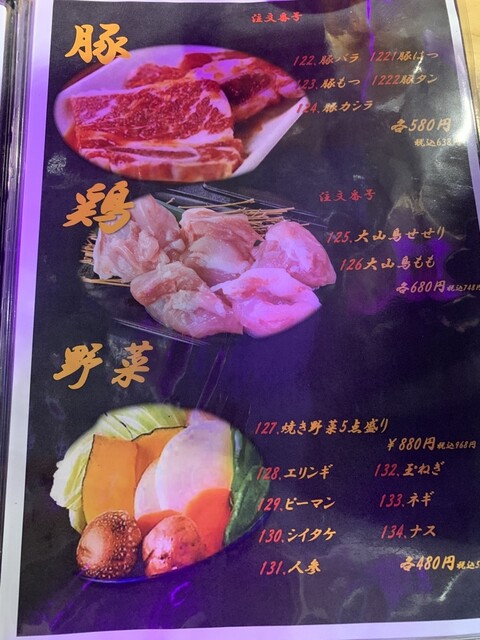 豚
注文番号
122.豚バラ 1221豚はつ
123.豚もつ 1222豚タン
124.豚カシラ
各580円
税込638円
鶏
注文番号
125.大山鳥せせり
126大山鳥もも
各680円税込748円
野菜
127.焼き野菜5点盛り
¥880円税込968円
128.エリンギ 132.玉ねぎ
129.ピーマン 133.ネギ
130.シイタケ 134.ナス
131.人参 各480円税込5